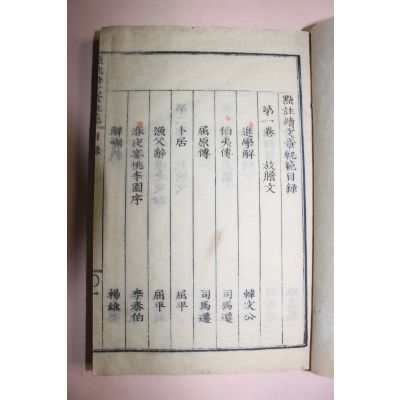 點註續文章軌範目錄
第一卷 放膽文
進學解 韓文公
伯夷傳 司馬遷
屈原傳 司馬遷
卜居 屈平
漁父辭 屈平
春夜宴桃李園序 李泰伯
解嘲 揚雄